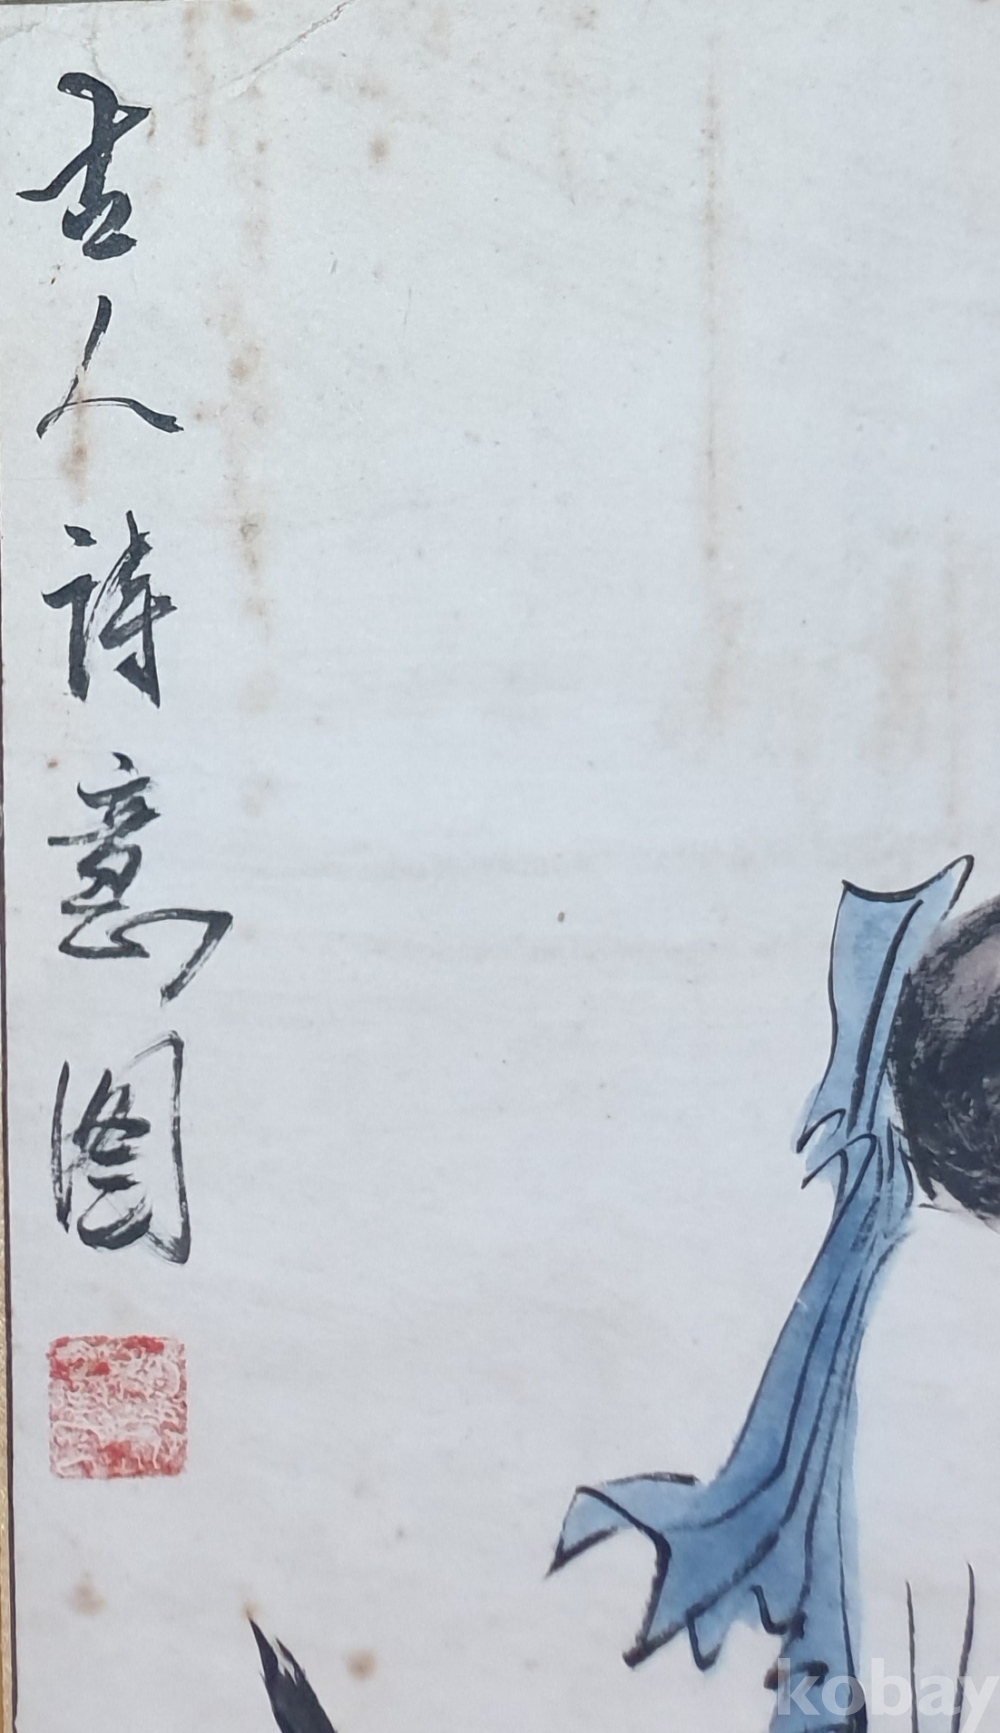 古人詩意图
kobay